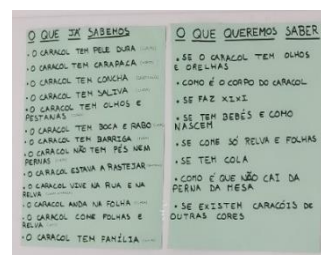 O QUE JÁ SABEMOS
• O CARACOL TEM PELE DURA
• O CARACOL TEM CARAPAÇA
• O CARACOL TEM CONCHA
• O CARACOL TEM SALIVA
• O CARACOL TEM OLHOS E
PESTANAS
• O CARACOL TEM BOCA E RABO
• O CARACOL TEM BARRIGA
• O CARACOL NÃO TEM PÉS NEM
PERNAS
• O CARACOL ESTAVA A RASTEJAR
• O CARACOL VIVE NA RUA E NA
RELVA
• O CARACOL ANDA NA FOLHA
• O CARACOL COME FOLHAS E
RELVA
• O CARACOL TEM FAMÍLIA
O QUE QUEREMOS SABER
• SE O CARACOL TEM OLHOS
E ORELHAS
• COMO É O CORPO DO CARACOL
• SE FAZ XIXI
• SE TEM BEBÉS E COMO
NASCEM
• SE COME SÓ RELVA E FOLHAS
• SE TEM COLA
• COMO É QUE NÃO CAI DA
PERNA DA MESA
• SE EXISTEM CARACÓIS DE
OUTRAS CORES